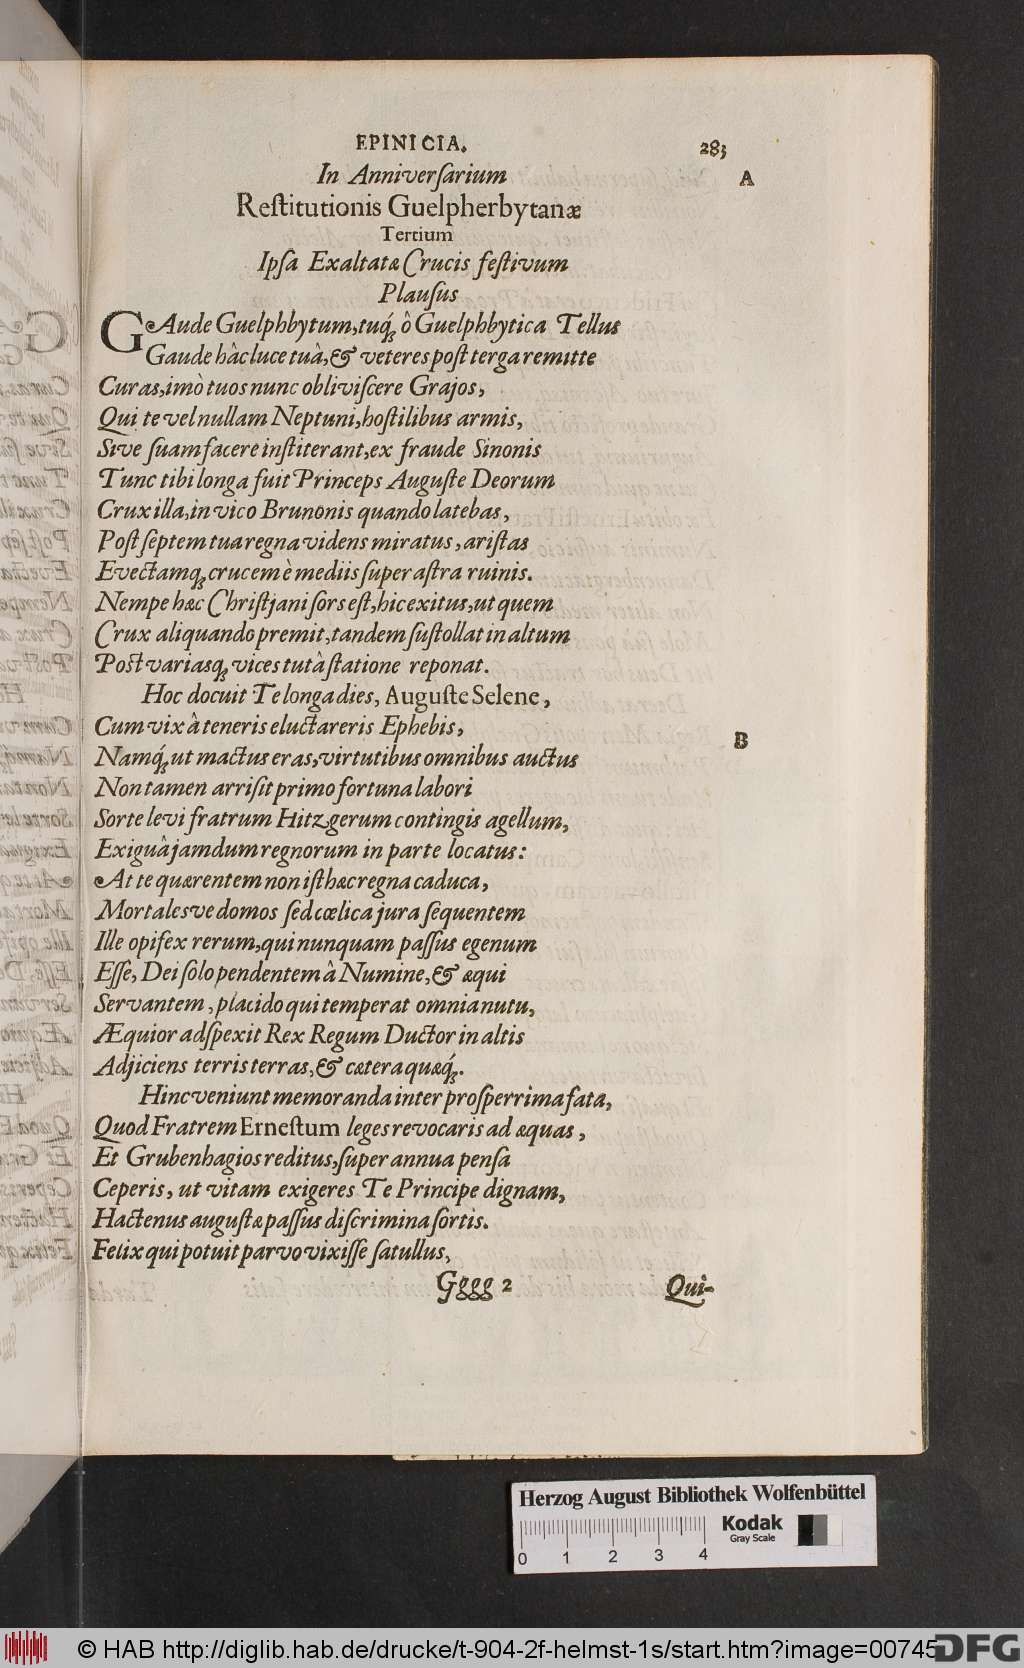 EPINICIA. 283
In Anniversarium A
Restitutionis Guelpherbytanæ
Tertium
Ipsa Exaltatæ Crucis festivum
Plausus
GAude Guelphbytum, tuq́; ô Guelphbytica Tellus
Gaude hâc luce tuâ, & veteres post terga remitte
Curas, imò tuos nunc oblivíscere Grajos,
Qui te vel nullam Neptuni, hostilibus armis,
Sive suam facere institerant, ex fraude Sinonis
Tunc tibi longa fuit Princeps Auguste Deorum
Crux illa, in vico Brunonis quando latebas,
Post septem tua regna videns miratus, aristas
Evectamq; crucem è mediis super astra ruinis.
Nempe hæc Christjani sors est, hic exitus, ut quem
Crux aliquando premit, tandem sustollat in altum
Post variasq; vices tutâ statione reponat.
Hoc docuit Te longa dies, Auguste Selene,
Cum vix à teneris eluctareris Ephebis, B
Namq́; ut mactus eras, virtutibus omnibus auctus
Non tamen arrisit primo fortuna labori
Sorte levi fratrum Hitzgerum contingis agellum,
Exiguâ jamdum regnorum in parte locatus:
At te quærentem non isthæc regna caduca,
Mortalesve domos sed cœlica jura sequentem
Ille opifex rerum, qui nunquam passus egenum
Esse, Dei solo pendentem â Numine, & æqui
Servantem, placido qui temperat omnia nutu,
Æquior adspexit Rex Regum Ductor in altis
Adjiciens terris terras, & cætera quæq́;.
Hinc veniunt memoranda inter prosperrima fata,
Quod Fratrem Ernestum leges revocaris ad æquas,
Et Grubenhagios reditus, super annua pensa
Ceperis, ut vitam exigeres Te Principe dignam,
Hactenus augustæ passus discrimina sortis.
Felix qui potuit parvo vixisse satullus,
Gggg 2 Qui-
Herzog August Bibliothek Wolfenbüttel
Kodak
Gray Scale
0 1 2 3 4
© HAB http://diglib.hab.de/drucke/t-904-2f-helmst-1s/start.htm?image=00745
DFG